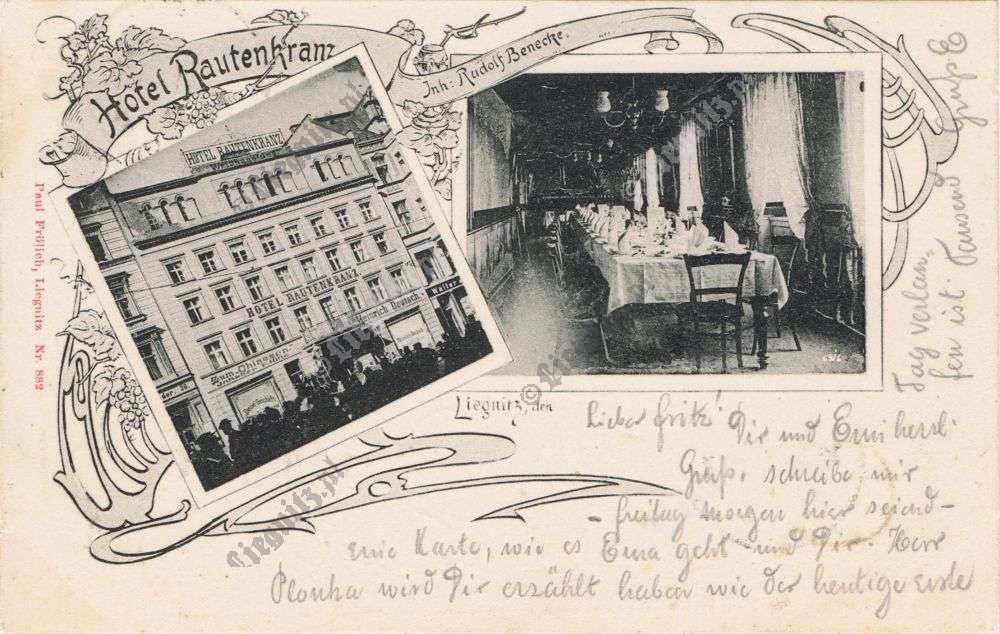 Hôtel Rautenkranz
Inh: Rudolf Benecke.
HOTEL RAUTENKRANZ
HOTEL RAUTENKRANZ
Heinrich Deutsch
Paul Fröhlich, Liegnitz Nr. 882
Liegnitz, den
Lieber Fritz! Dir und Erni herzl.
Grüß. schreibe mir
- freitag morgen hier seiend -
eine Karte, wie es Erna geht und Dir. Herr
Plonka wird Dir erzählt haben wie der heutige erste
Tag verlaufen ist. Tausend Grüße
© Liegnitz.pl
Liegnitz.pl
Liegnitz.pl
Liegnitz.pl